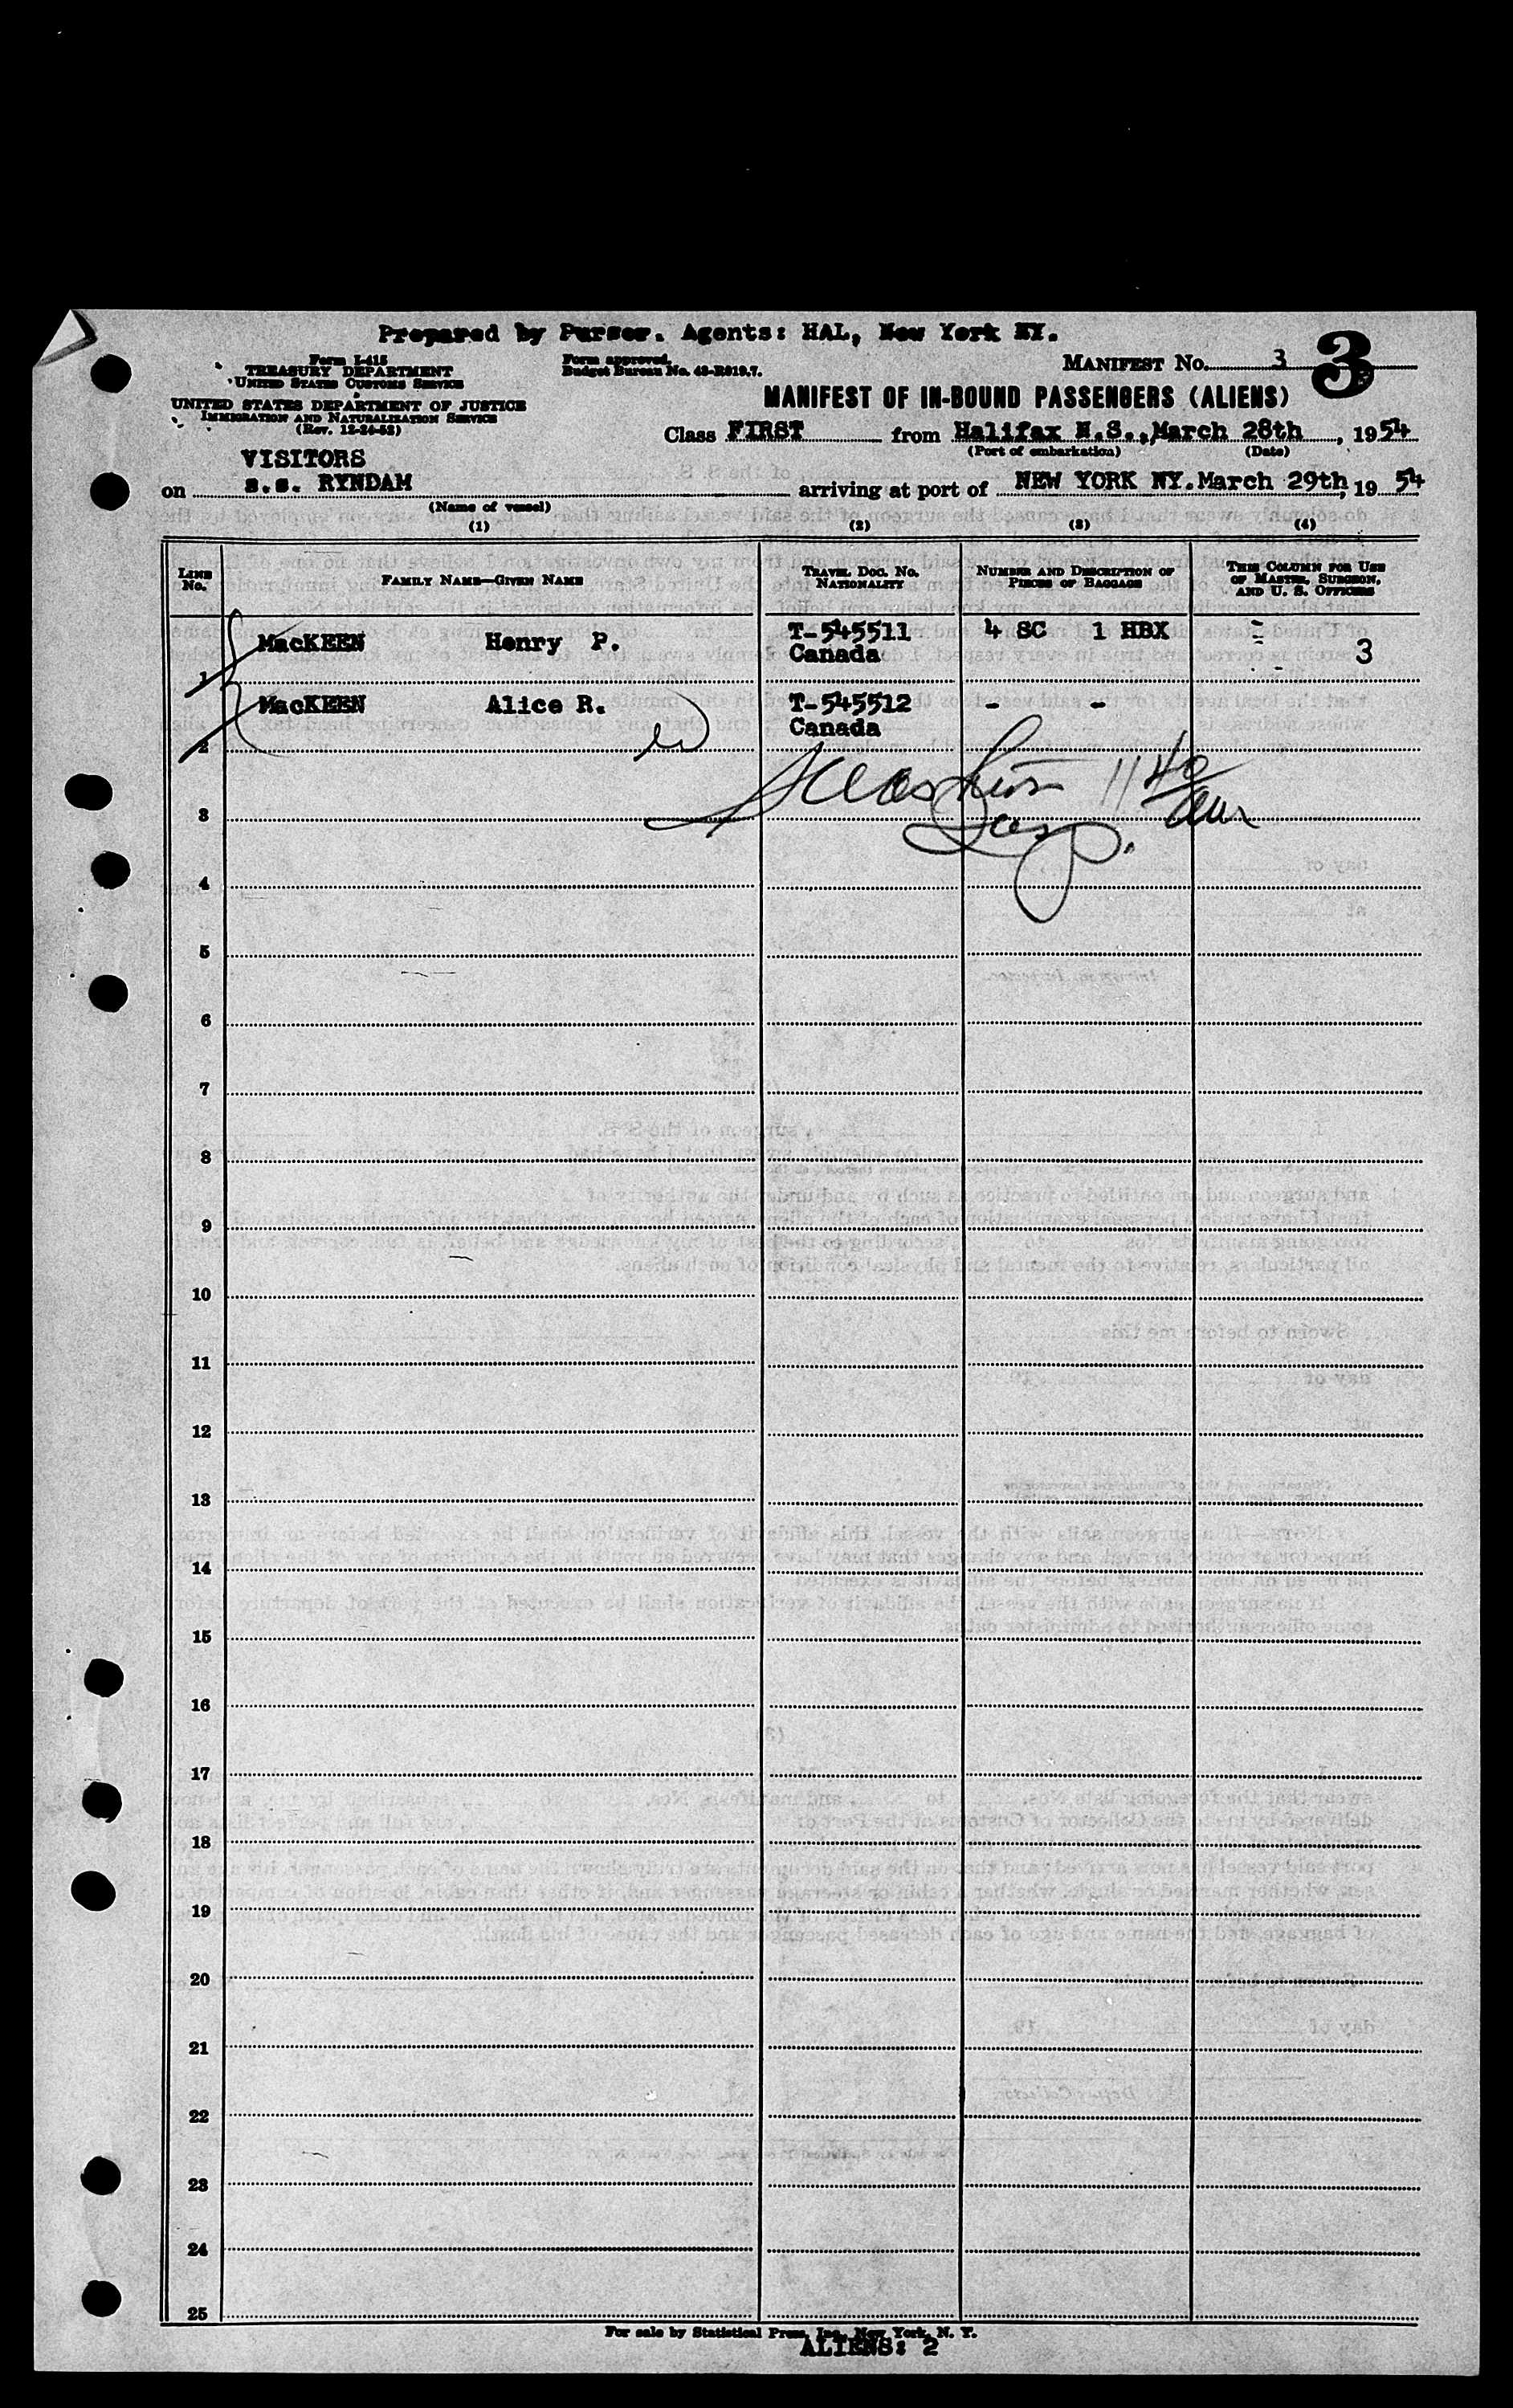 Prepared by Purser. Agents: HAL, New York NY.
Form I-415
TREASURY DEPARTMENT
UNITED STATES CUSTOMS SERVICE
UNITED STATES DEPARTMENT OF JUSTICE
IMMIGRATION AND NATURALIZATION SERVICE
(Rev. 12-24-52)
Form approved.
Budget Bureau No. 43-R019.7.
MANIFEST No. 3 3
MANIFEST OF IN-BOUND PASSENGERS (ALIENS)
Class FIRST from Halifax N.S., March 28th, 1954
(Port of embarkation) (Date)
VISITORS
on s.s. RYNDAM arriving at port of NEW YORK NY. March 29th, 1954
(Name of vessel)
(1) (2) (3) (4)
LINE No. FAMILY NAME—GIVEN NAME TRAVEL DOC. NO. NATIONALITY NUMBER AND DESCRIPTION OF PIECES OF BAGGAGE THIS COLUMN FOR USE OF MASTER, SURGEON, AND U. S. OFFICERS
1 MacKEEN Henry P. T-545511 4 SC 1 HBX -
Canada - 3
2 MacKEEN Alice R. T-545512 - -
Canada
11 40
3
Insp.
4
5
6
7
8
9
10
11
12
13
14
15
16
17
18
19
20
21
22
23
24
25
For sale by Statistical Press, Inc., New York, N. Y.
ALIENS: 2